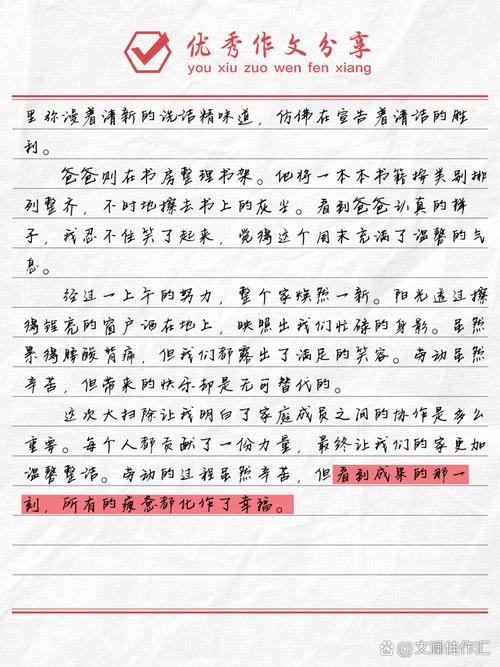 优秀作文分享
you xiu zuo wen fen xiang
里弥漫着清新的洗洁精味道，仿佛在宣告着清洁的胜
利。
爸爸则在书房整理书架。他将一本本书籍按类别排
列整齐，不时地擦去书上的灰尘。看到爸爸认真的样
子，我忍不住笑了起来，觉得这个周末充满了温馨的气
息。
经过一上午的努力，整个家焕然一新。阳光透过擦
得锃亮的窗户洒在地上，映照出我们忙碌的身影。虽然
累得腰酸背痛，但我们都露出了满足的笑容。劳动虽然
辛苦，但带来的快乐却是无可替代的。
这次大扫除让我明白了家庭成员之间的协作是多么
重要。每个人都贡献了一份力量，最终让我们的家更加
温馨整洁。劳动的过程虽然辛苦，但看到成果的那一
刻，所有的疲惫都化作了幸福。
@文澜佳作汇